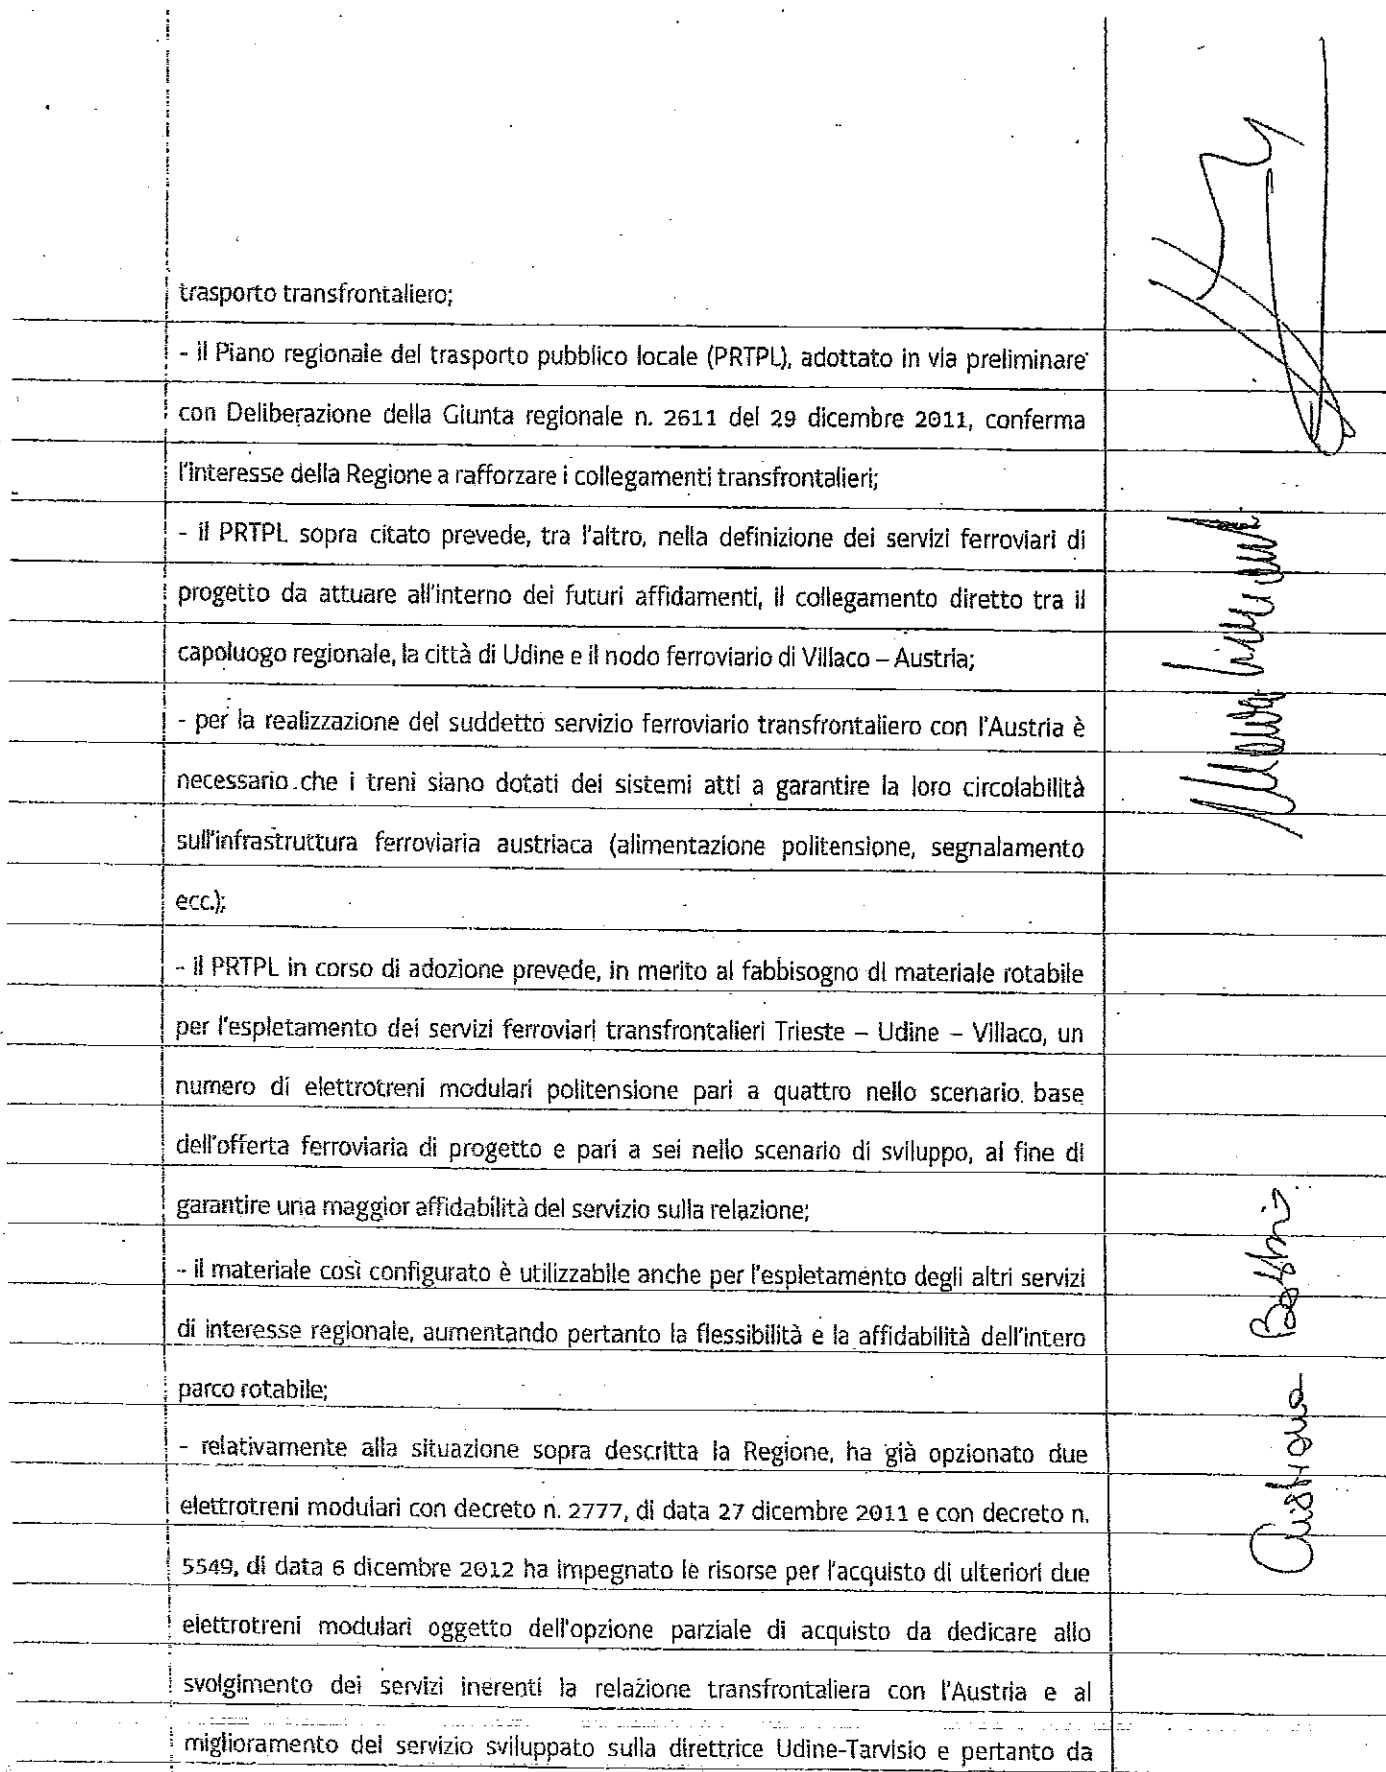 trasporto transfrontaliero;
- il Piano regionale del trasporto pubblico locale (PRTPL), adottato in via preliminare
con Deliberazione della Giunta regionale n. 2611 del 29 dicembre 2011, conferma
l'interesse della Regione a rafforzare i collegamenti transfrontalieri;
- il PRTPL sopra citato prevede, tra l'altro, nella definizione dei servizi ferroviari di
progetto da attuare all'interno dei futuri affidamenti, il collegamento diretto tra il
capoluogo regionale, la città di Udine e il nodo ferroviario di Villaco – Austria;
- per la realizzazione del suddetto servizio ferroviario transfrontaliero con l'Austria è
necessario che i treni siano dotati dei sistemi atti a garantire la loro circolabilità
sull'infrastruttura ferroviaria austriaca (alimentazione politensione, segnalamento
ecc.);
- il PRTPL in corso di adozione prevede, in merito al fabbisogno di materiale rotabile
per l'espletamento dei servizi ferroviari transfrontalieri Trieste – Udine – Villaco, un
numero di elettrotreni modulari politensione pari a quattro nello scenario base
dell'offerta ferroviaria di progetto e pari a sei nello scenario di sviluppo, al fine di
garantire una maggior affidabilità del servizio sulla relazione;
- il materiale così configurato è utilizzabile anche per l'espletamento degli altri servizi
di interesse regionale, aumentando pertanto la flessibilità e la affidabilità dell'intero
parco rotabile;
- relativamente alla situazione sopra descritta la Regione, ha già opzionato due
elettrotreni modulari con decreto n. 2777, di data 27 dicembre 2011 e con decreto n.
5549, di data 6 dicembre 2012 ha impegnato le risorse per l'acquisto di ulteriori due
elettrotreni modulari oggetto dell'opzione parziale di acquisto da dedicare allo
svolgimento dei servizi inerenti la relazione transfrontaliera con l'Austria e al
miglioramento del servizio sviluppato sulla direttrice Udine-Tarvisio e pertanto da